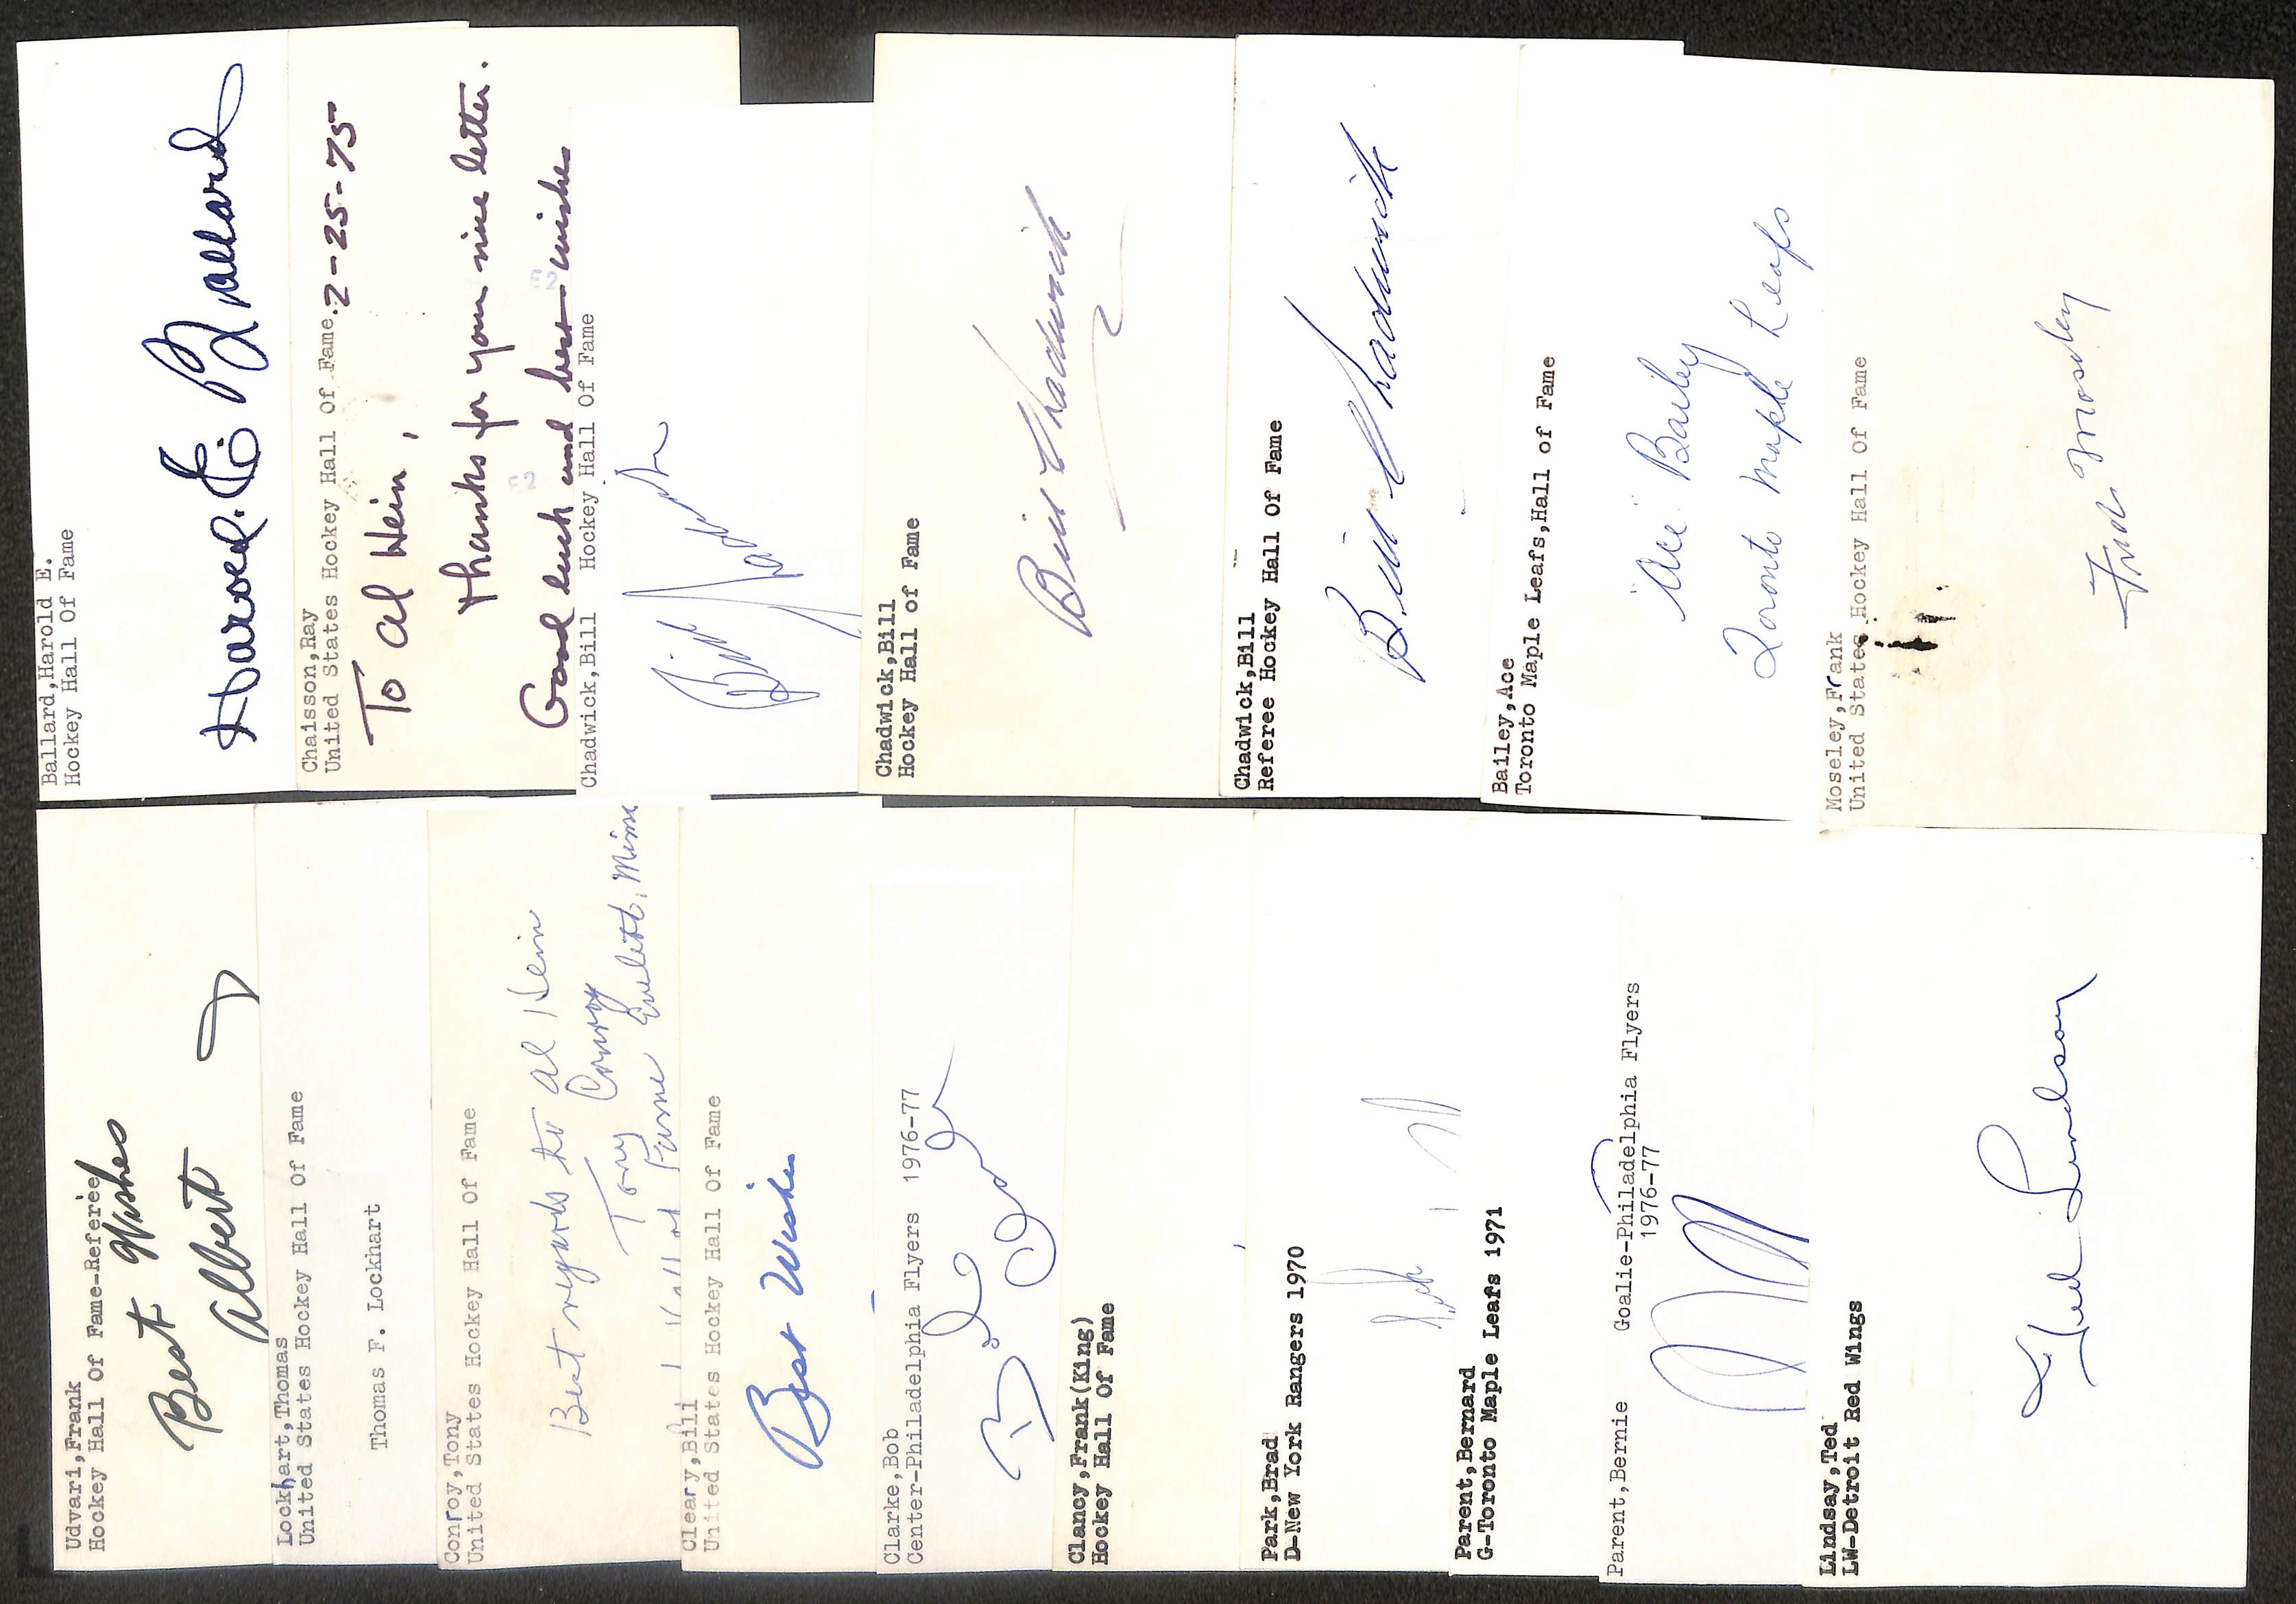 Ballard,Harold E.
Hockey Hall Of Fame
Harold E. Ballard
Chaisson,Ray
United States Hockey Hall Of Fame.
2-25-75
To Al Hein,
thanks for your nice letter.
Good luck and best wishes
Chadwick,Bill Hockey Hall Of Fame
Bill Chadwick
Chadwick,Bill
Hockey Hall of Fame
Bill Chadwick
Chadwick,Bill
Referee Hockey Hall Of Fame
Bill Chadwick
Bailey,Ace
Toronto Maple Leafs,Hall of Fame
"Ace" Bailey
Toronto Maple Leafs
Moseley,Frank
United States Hockey Hall Of Fame
Fred Moseley
Udvari,Frank
Hockey Hall Of Fame-Referee
Best Wishes
Albert
Lockhart,Thomas
United States Hockey Hall Of Fame
Thomas F. Lockhart
Conroy,Tony
United States Hockey Hall Of Fame
Best regards to Al Hein
Tony Conroy
Hall of Fame Eveleth, Minn
Cleary,Bill
United States Hockey Hall Of Fame
Best Wishes
Clarke,Bob
Center-Philadelphia Flyers 1976-77
Bob Clarke
Clancy,Frank(King)
Hockey Hall Of Fame
Park,Brad
D-New York Rangers 1970
Parent,Bernard
G-Toronto Maple Leafs 1971
Parent,Bernie Goalie-Philadelphia Flyers
1976-77
Lindsay,Ted
LW-Detroit Red Wings
Ted Lindsay